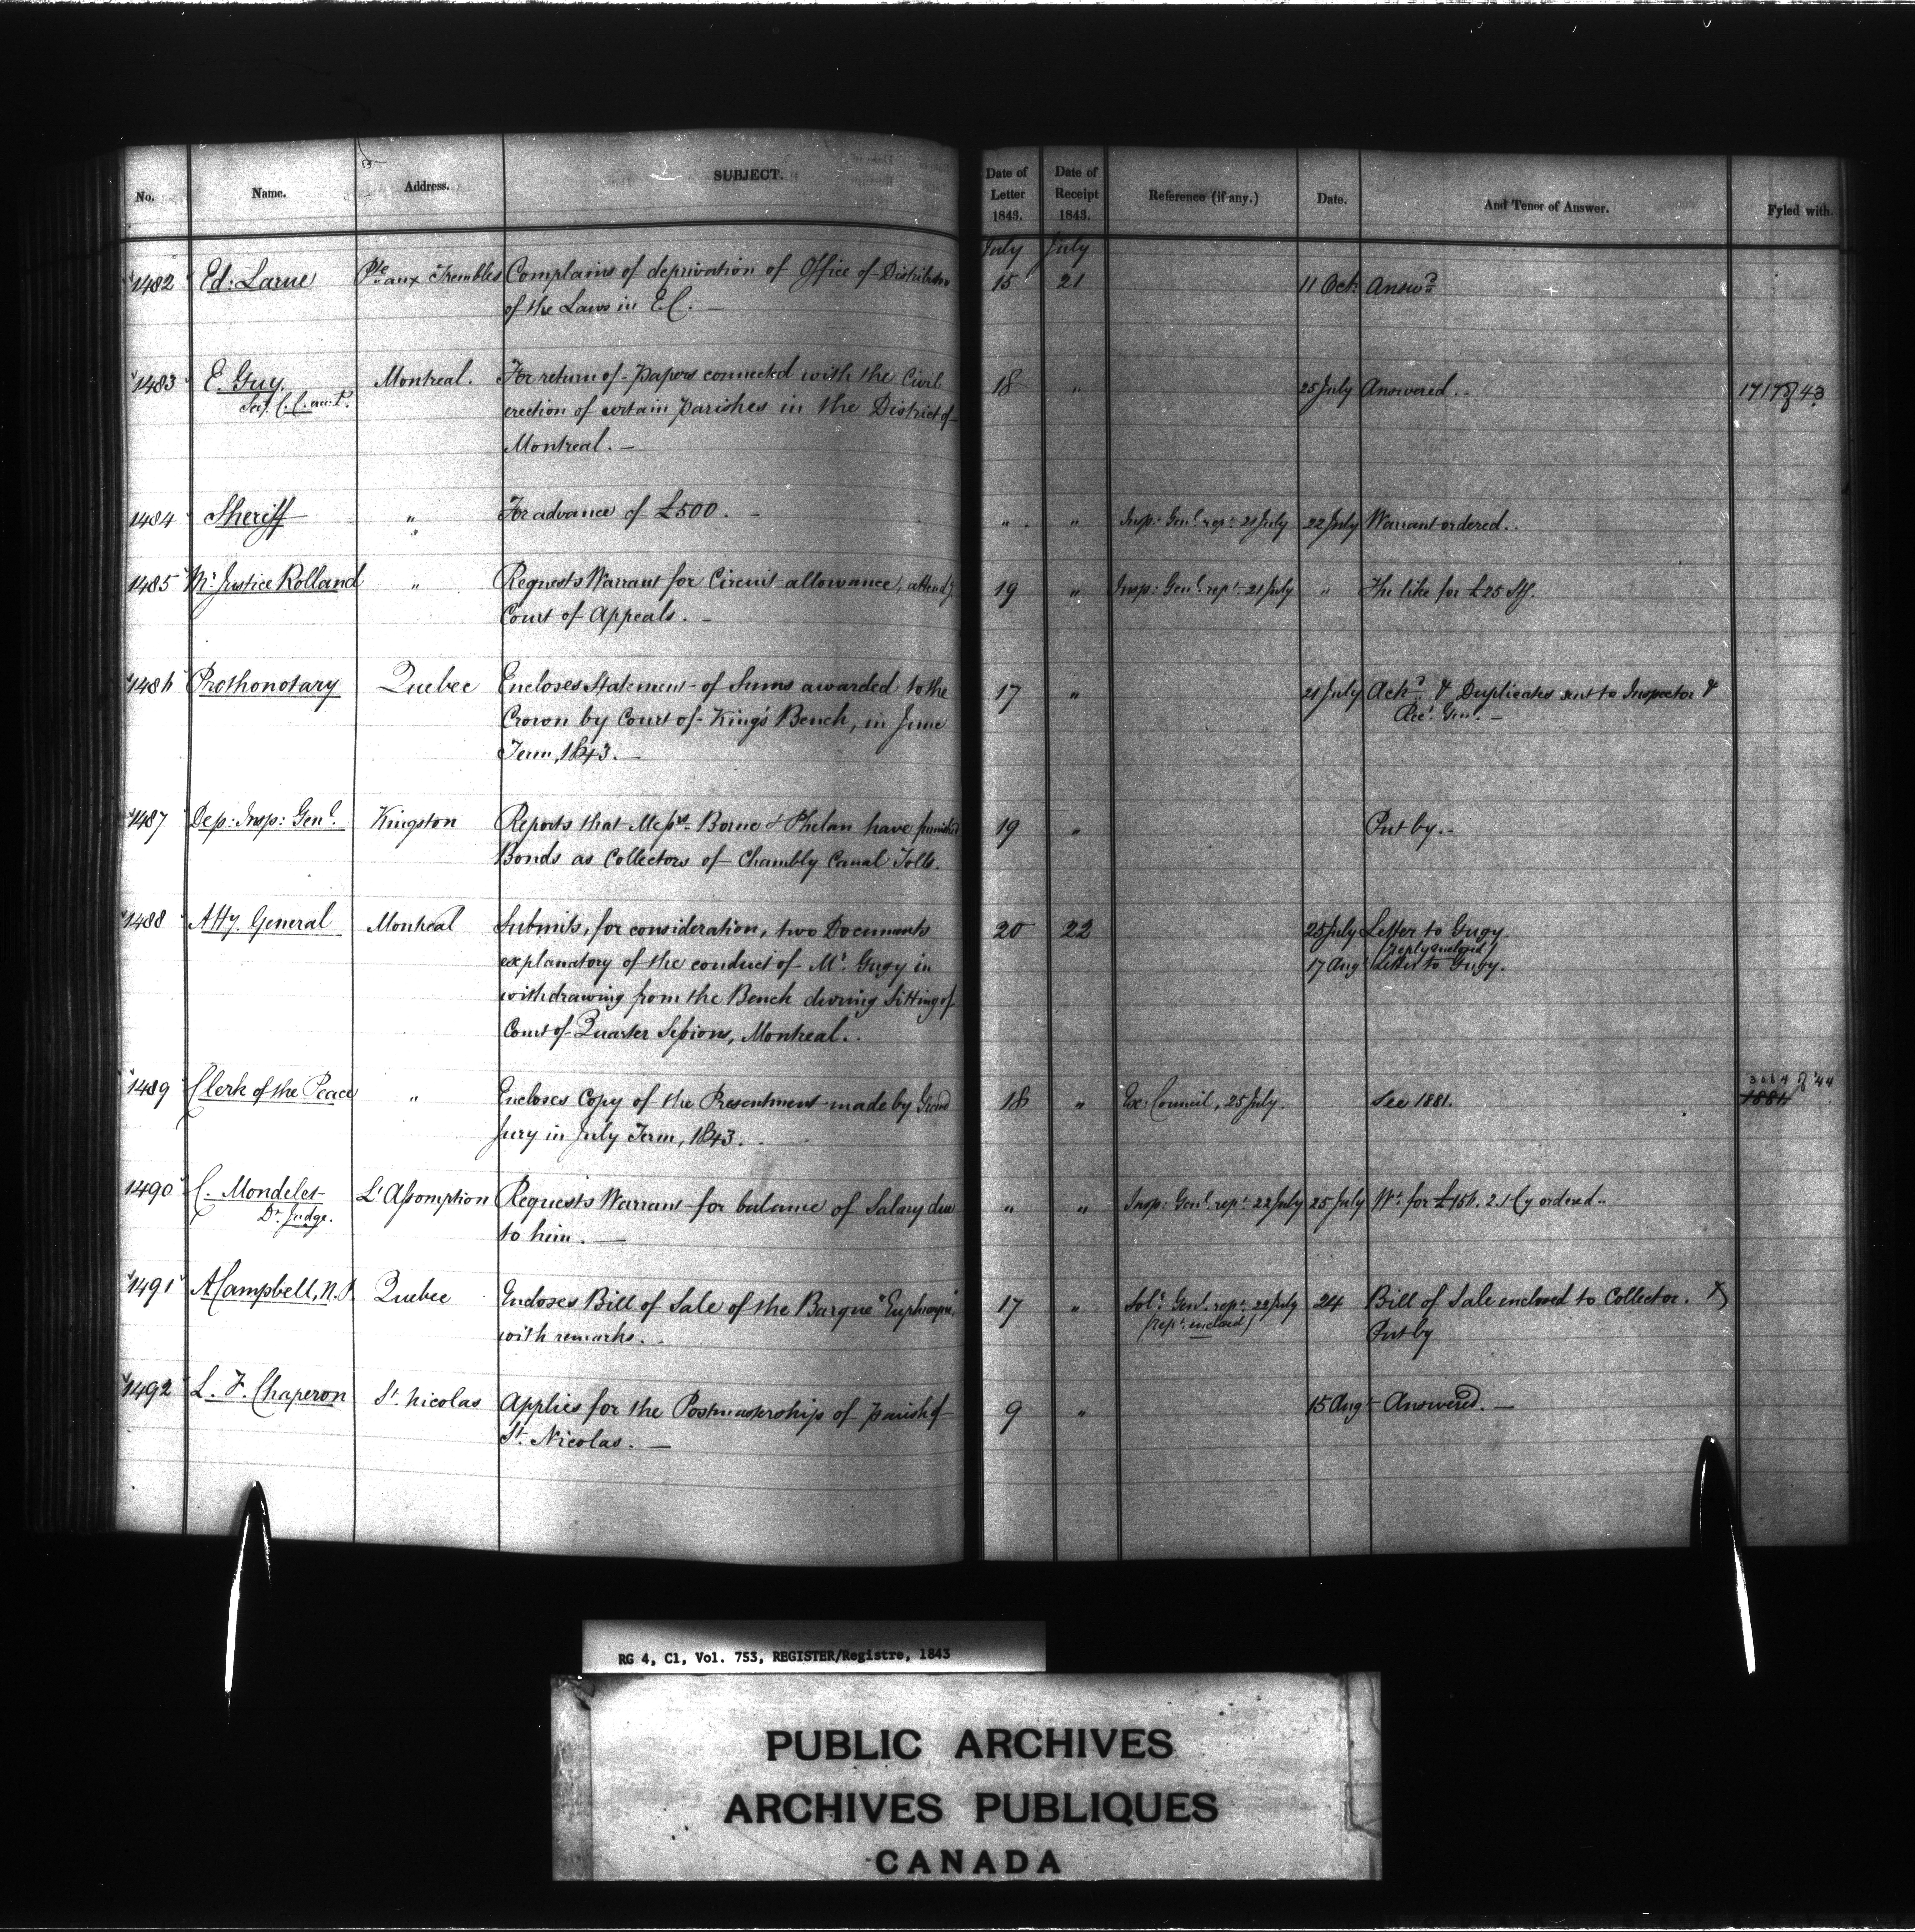 No. Name. Address. SUBJECT. Date of Letter 1843. Date of Receipt 1843. Reference (if any.) Date. And Tenor of Answer. Fyled with.
July July
1482 Ed: Larue Pte aux Trembles Complains of deprivation of Office of Distribution 15 21 11 Oct: Answd
of the Laws in E.C. —
1483 E. Guy. Montreal. For return of papers connected with the Civil 18 " 25 July Answered. 1717 of 43
erection of certain parishes in the District of
Montreal. —
1484 Sheriff " For advance of £500. — " " Insp: Genl. rept. 21 July 22 July Warrant ordered.
1485 Mr. Justice Rolland " Requests Warrant for Circuit allowance, attendg 19 " Insp: Genl. rept. 21 July " The like for £25 Stg.
Court of Appeals. —
1486 Prothonotary Quebec Encloses Statement of Sums awarded to the 17 " 21 July Ackd. & Duplicates sent to Inspector &
Crown by Court of King's Bench, in June Recr. Genl. —
Term, 1843. —
1487 Dep: Insp: Genl. Kingston Reports that Messrs. Borne & Phelan have furnished 19 " Put by. -
Bonds as Collectors of Chambly Canal Tolls.
1488 Atty. General Montreal Submits, for consideration, two Documents 20 22 25 July Letter to Gugy
(reply enclosed)
explanatory of the conduct of Mr. Gugy in 17 Augt Letter to Gugy.
withdrawing from the Bench during Sitting of
Court of Quarter Sessions, Montreal.
1489 Clerk of the Peace " Encloses Copy of the Presentment made by Grand 18 " Ex: Council, 25 July. See 1881. of '44
1881
Jury in July Term, 1843.
1490 C. Mondelet L'Assomption Requests Warrant for balance of Salary due " " Insp: Genl. rept. 22 July 25 July Wt. for £156. 2. 1 Cy ordered.
Dt. Judge.
to him. —
1491 A Campbell, N.P. Quebec Encloses Bill of Sale of the Barque 17 " Solr. Genl. rept. 22 July 24 Bill of Sale enclosed to Collector.
(rept. enclosed)
with remarks. Put by
1492 L. F. Chaperon St. Nicolas Applies for the Postmastership of parish of 9 " 15 Augt Answered. —
St. Nicolas. —
RG 4, C1, Vol. 753, REGISTER/Registre, 1843
PUBLIC ARCHIVES
ARCHIVES PUBLIQUES
CANADA